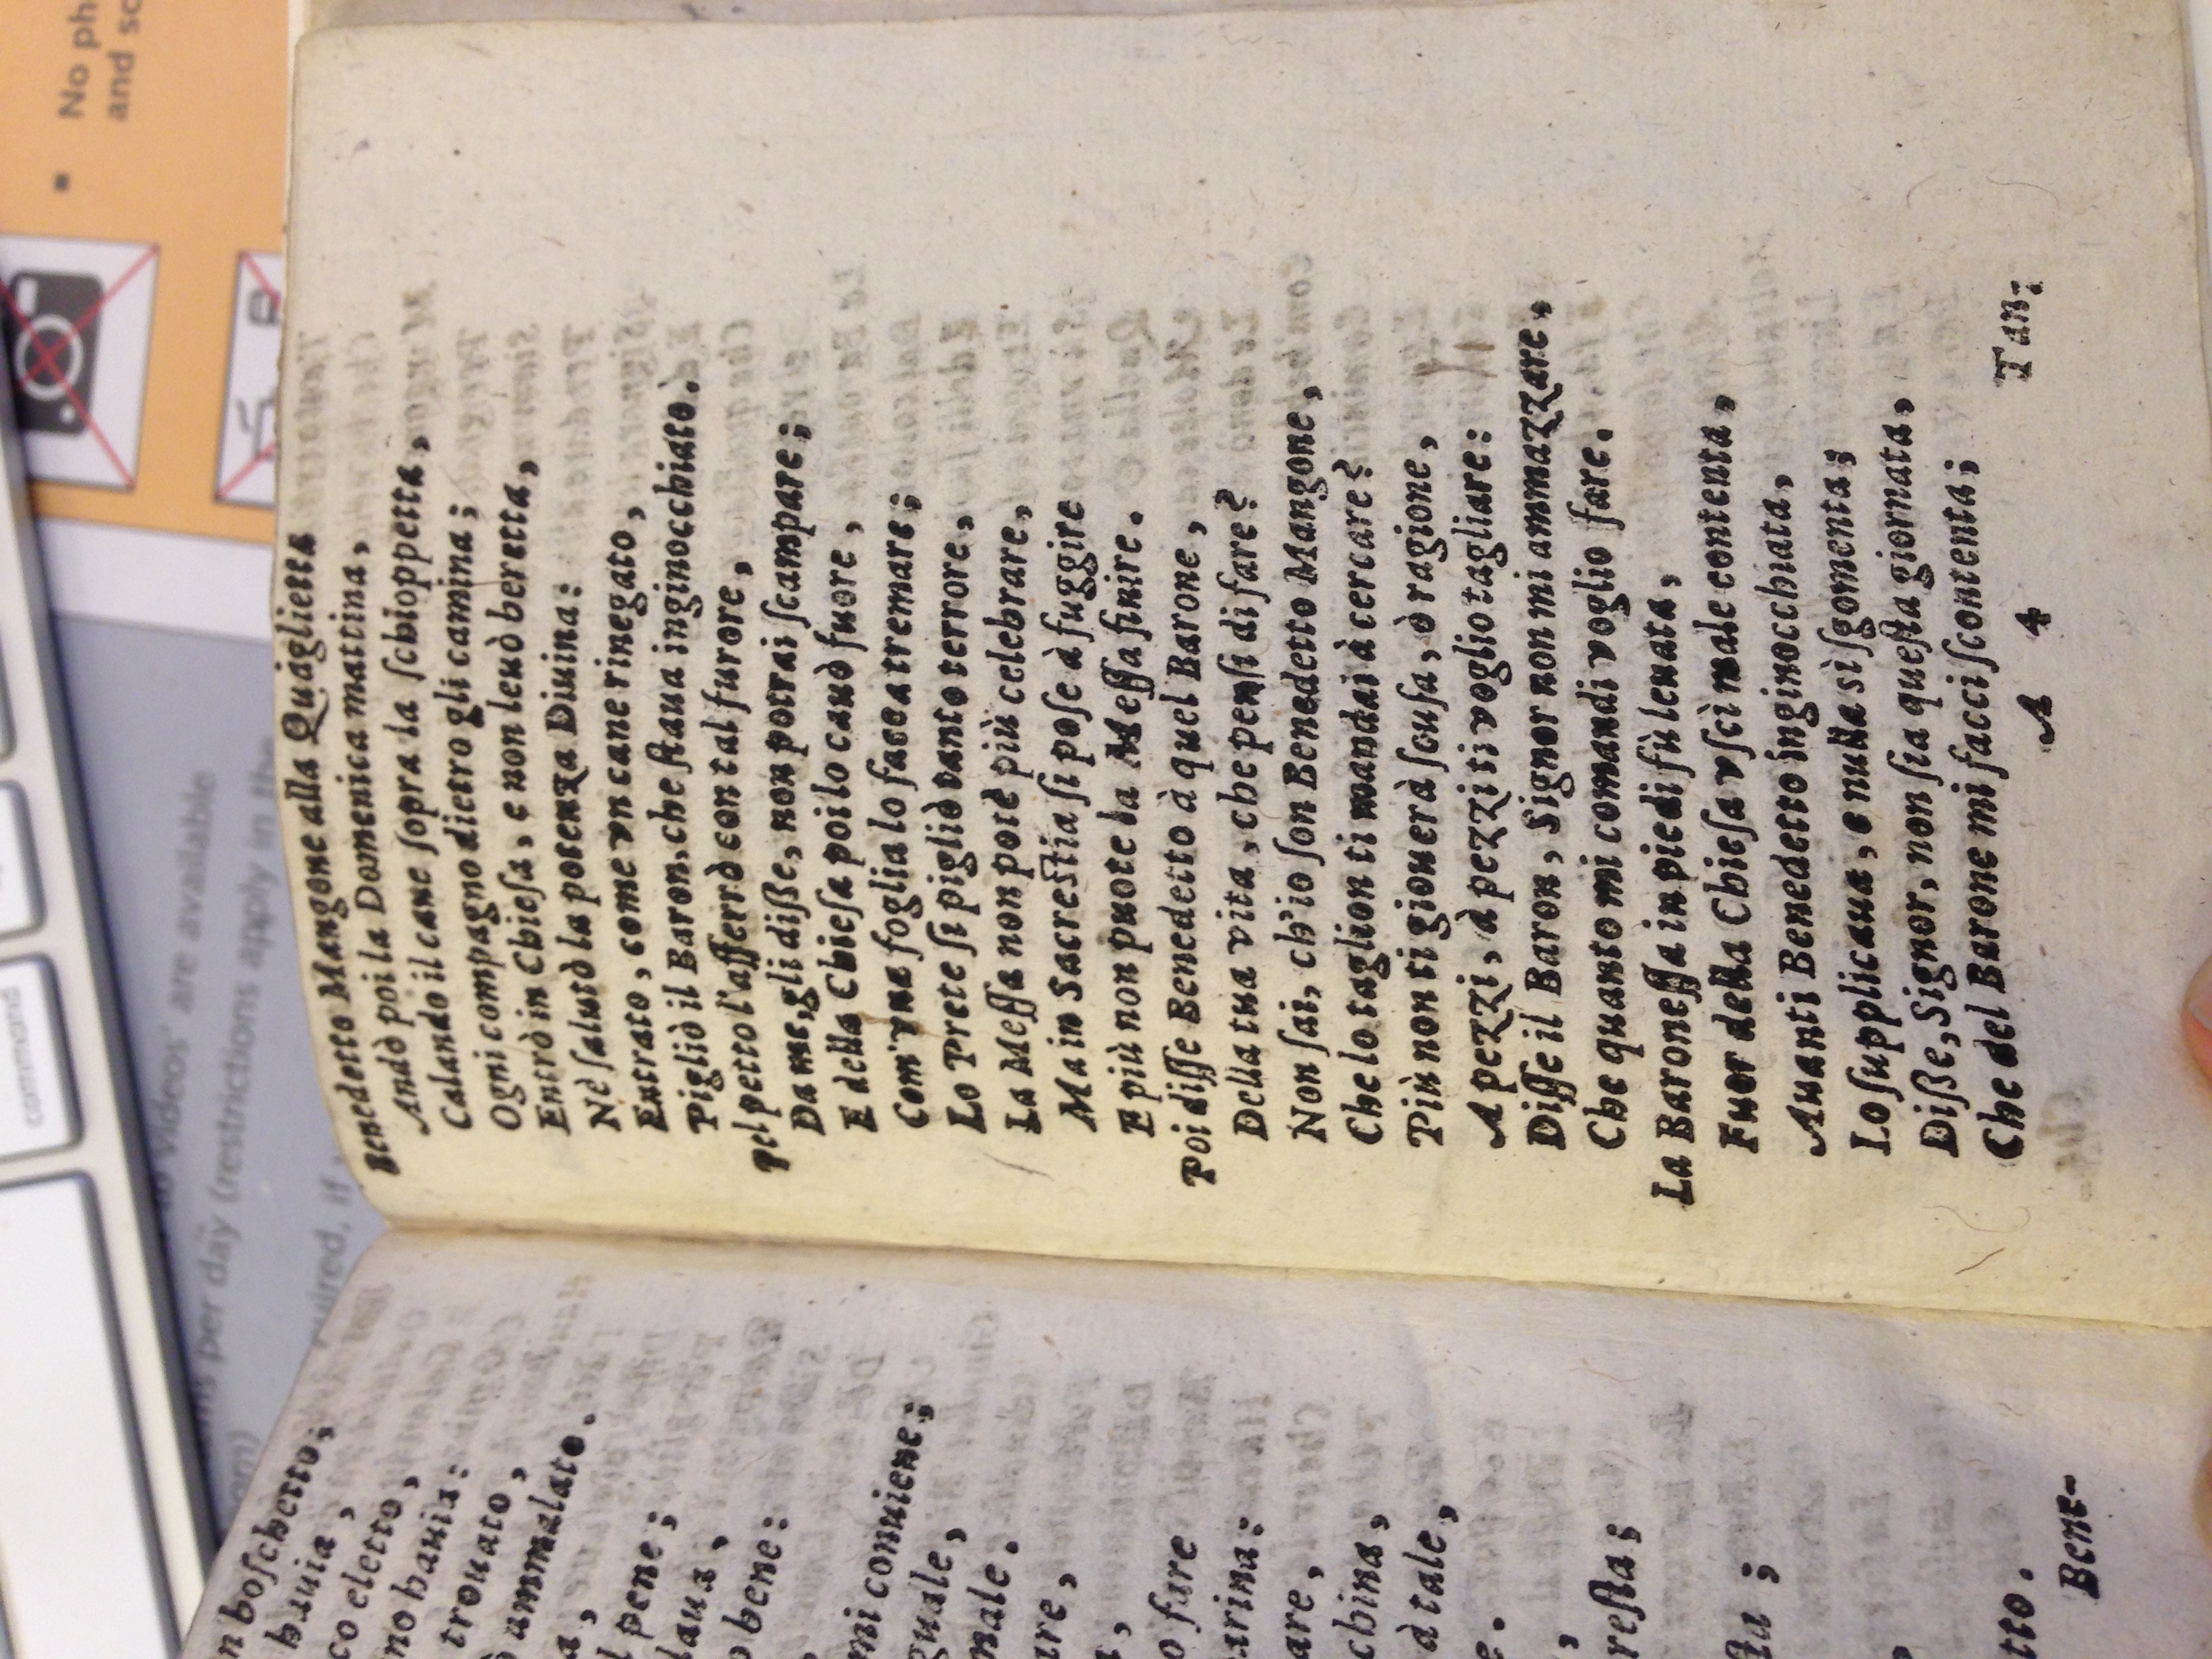 No ph
and sc
command
videos' are available
ms per day (restrictions apply in the
uired, if
n boschetto;
hauia,
co eletto,
no hauia:
trouato,
ammalato.
a,
l pene;
laua,
o bene:
mi conuiene;
guale,
male.
are,
,
o fare
arina:
are,
china,
à tale,
e.
,
resta;
sta;
tto.
Bene-
Benedetto Mangone alla Quaglietta
Andò poi la Domenica mattina,
Calando il cane sopra la schioppetta,
Ogni compagno dietro gli camina;
Entrò in Chiesa, e non leuò beretta,
Nè salutò la potenza Diuina:
Entrato, come vn cane rinegato,
Pigliò il Baron, che staua inginocchiato.
Pel petto l'afferrò con tal furore,
Da me, gli disse, non potrai scampare;
E della Chiesa poi lo cauò fuore,
Com'vna foglia lo facea tremare;
Lo Prete si pigliò tanto terrore,
La Messa non potè più celebrare,
Ma in Sacrestia si pose à fuggire
E più non puote la Messa finire.
Poi disse Benedetto à quel Barone,
Della tua vita, che pensi di fare?
Non sai, ch'io son Benedetto Mangone,
Che lo taglion ti mandai à cercare?
Più non ti giouerà scusa, ò ragione,
A pezzi, à pezzi ti voglio tagliare:
Disse il Baron, Signor non mi ammazzare,
Che quanto mi comandi voglio fare.
La Baronessa in piedi fù leuata,
Fuor della Chiesa vscì male contenta,
Auanti Benedetto inginocchiata,
Lo supplicaua, e nulla si sgomenta;
Disse, Signor, non sia questa giornata,
Che del Barone mi facci scontenta;
A 4 Tan-